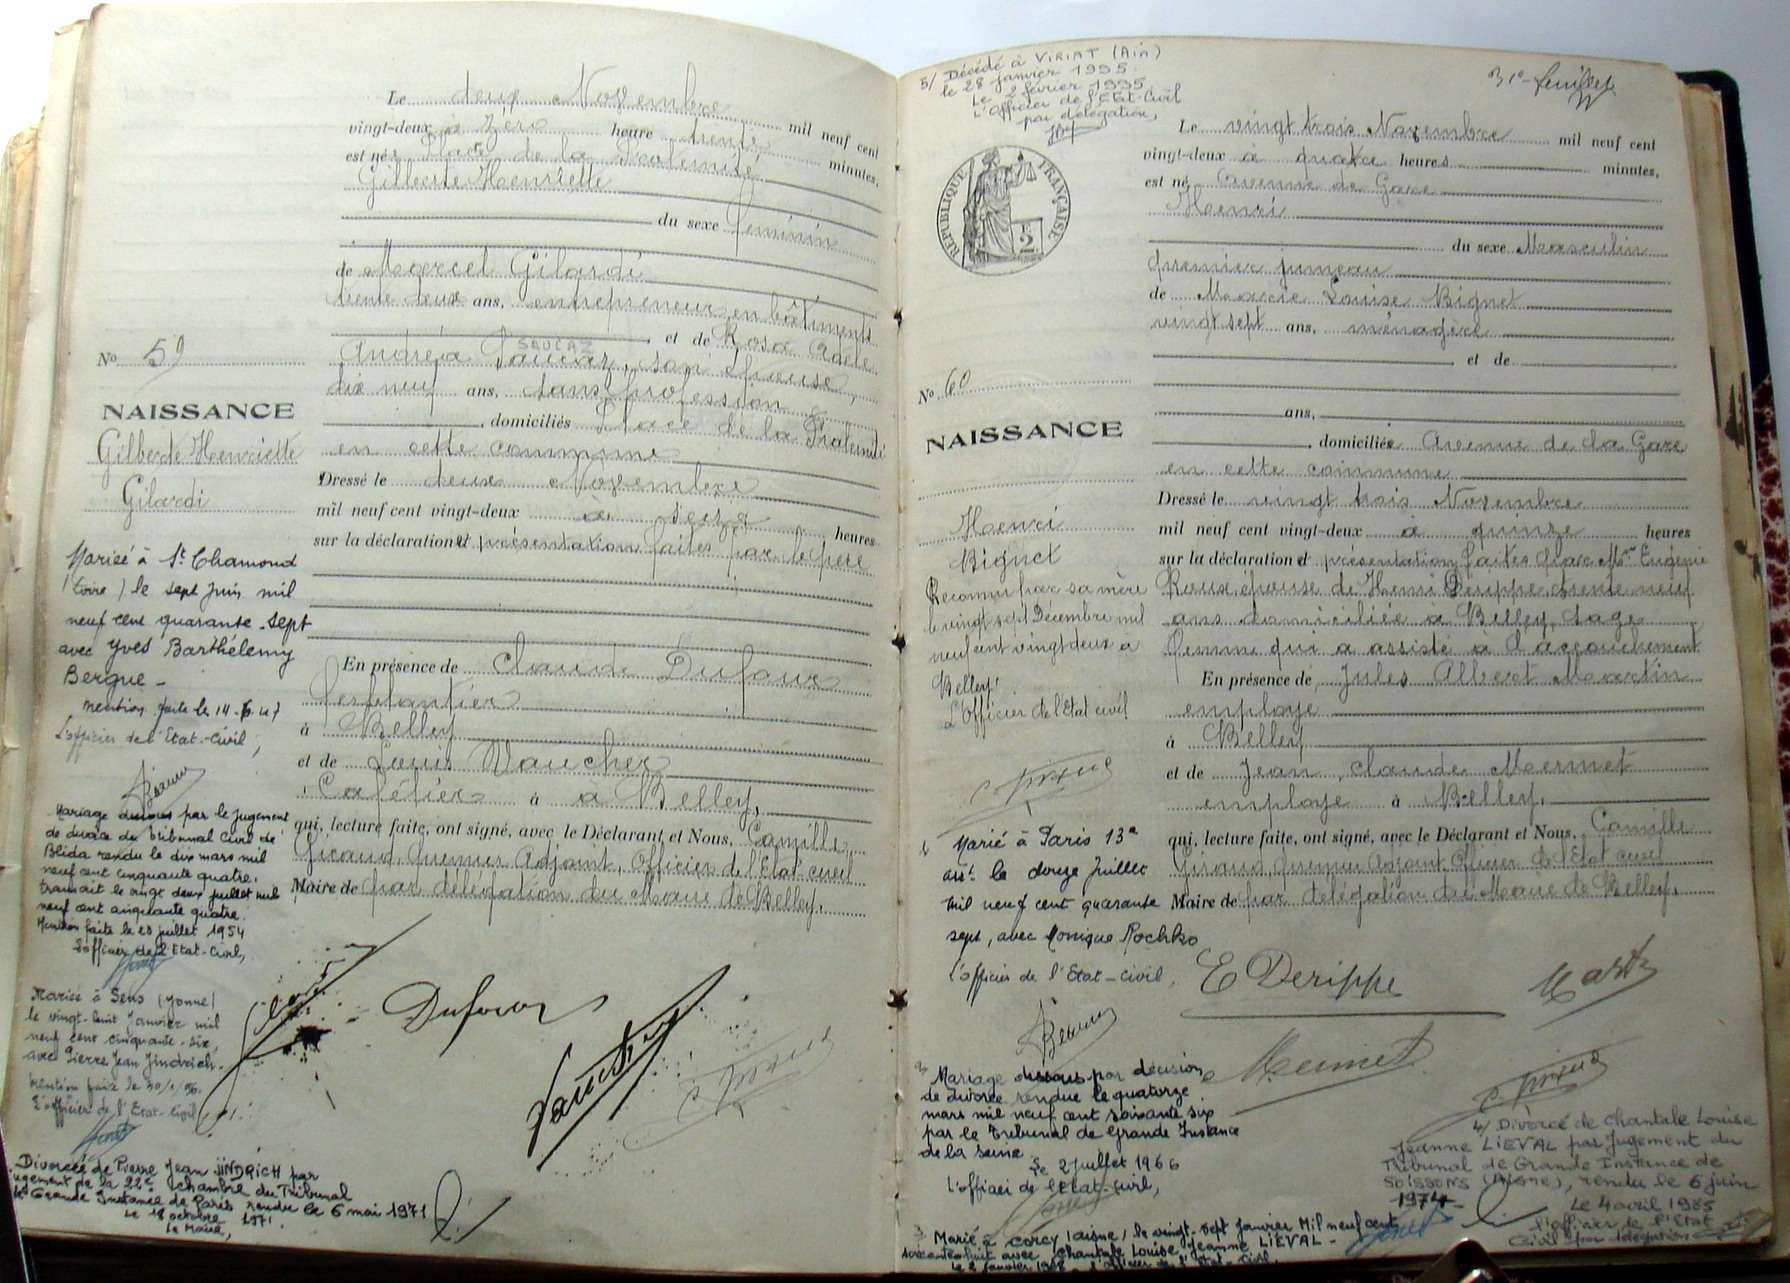 Le deux Novembre mil neuf cent
vingt-deux à zéro heure trente minutes,
est née Place de la Fraternité
Gilberte Henriette
du sexe féminin
de Marcel Gilardi
trente deux ans, entrepreneur en bâtiments
et de Rosa Adèle
SAUCAZ
Andréa Saucaz, son épouse,
dix neuf ans, sans profession
domiciliés Place de la Fraternité
en cette commune
Dressé le deux Novembre
mil neuf cent vingt-deux à seize heures
sur la déclaration et présentation faites par le père
En présence de Claude Dufour
ferblantier
à Belley
et de Louis Vaucher
Cafetier à a Belley,
qui, lecture faite, ont signé, avec le Déclarant et Nous, Camille
Giraud, premier Adjoint, Officier de l'Etat civil
Maire de par délégation du Maire de Belley.
Dufour
Vaucher
No 59
NAISSANCE
Gilberte Henriette
Gilardi
Mariée à St Chamond
(Loire) le sept Juin mil
neuf cent quarante-sept
avec Yves Barthélemy
Bergue -
mention faite le 14-6-47
L'officier de l'Etat-Civil,
Mariage dissous par le jugement
de divorce du tribunal Civil de
Blida rendu le dix mars mil
neuf cent cinquante quatre,
transcrit le vingt deux juillet mil
neuf cent cinquante quatre.
Mention faite le 23 juillet 1954
L'officier de l'Etat-Civil,
Mariée à Sens (Yonne)
le vingt-huit Janvier mil
neuf cent cinquante-six,
avec Pierre Jean Jindrich -
Mention faite le 30/1/56.
L'officier de l'Etat-Civil,
Divorcée de Pierre Jean JINDRICH par
jugement de la 22e chambre du Tribunal
de Grande Instance de Paris rendu le 6 mai 1971
Le 18 octobre 1971.
Le Maire,
5/ Décédé à VIRIAT (Ain)
le 28 janvier 1995.
Le 2 février 1995
L'officier de l'Etat-Civil
par délégation,
31e feuillet
RÉPUBLIQUE FRANÇAISE
Le vingt trois Novembre mil neuf cent
vingt-deux à quatre heures minutes,
est né Avenue de Gare
Henri
du sexe Masculin
premier jumeau
de Marie Louise Bignet
vingt sept ans, ménagère
et de
ans,
domiciliée Avenue de la Gare
en cette commune
Dressé le vingt trois Novembre
mil neuf cent vingt-deux à quinze heures
sur la déclaration et présentation faites par Mme Eugénie
Roux, épouse de Henri Derippe, trente neuf
ans domiciliée à Belley, sage
femme qui a assisté à l'accouchement
En présence de Jules Albert Martin
employé
à Belley
et de Jean Claude Mermet
employé à Belley,
qui, lecture faite, ont signé, avec le Déclarant et Nous, Camille
Giraud, premier Adjoint, Officier de l'Etat civil
Maire de par délégation du Maire de Belley.
E Derippe
Martin
Mermet
No 60
NAISSANCE
Henri
Bignet
Reconnu par sa mère
le vingt sept Décembre mil
neuf cent vingt deux à
Belley.
L'Officier de l'Etat civil
Marié à Paris 13e
arrt. le douze Juillet
mil neuf cent quarante
sept, avec Monique Rochko
L'officier de l'Etat-Civil,
Mariage dissous par décision
de divorce rendue le quatorze
mars mil neuf cent soixante six
par le Tribunal de Grande Instance
de la Seine
Le 2 Juillet 1966
L'officier de l'Etat-Civil,
3 Marié à Corcy (Aisne) le vingt-sept Janvier Mil neuf cent
soixante huit avec Chantale Louise Jeanne LIÉVAL -
4/ Divorcé de Chantale Louise
Jeanne LIÉVAL par jugement du
Tribunal de Grande Instance de
SOISSONS (AISNE), rendu le 6 juin
1974 -
Le 4 avril 1985
L'officier de l'Etat
Civil par délégation